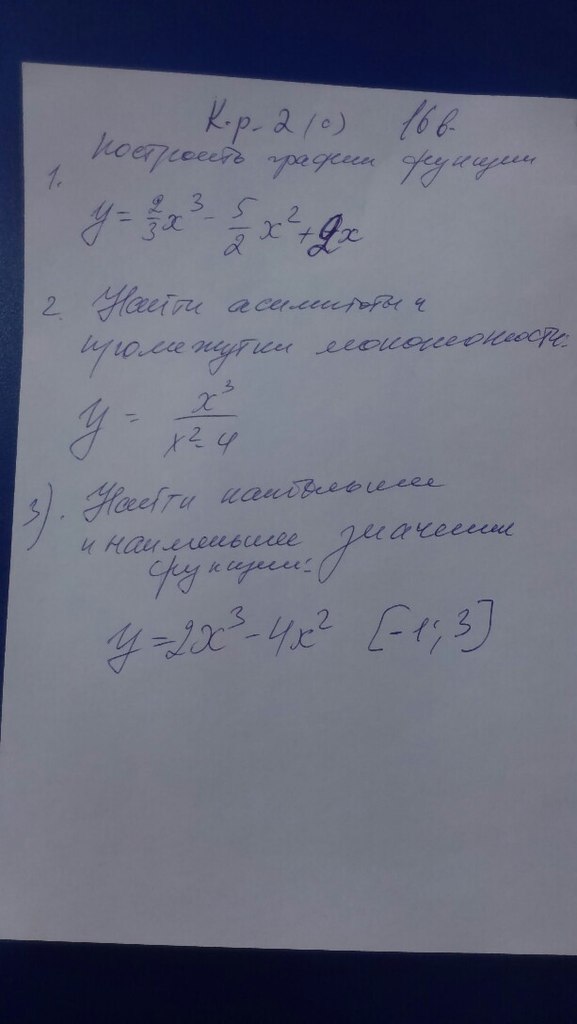 К.р. 2 (о) 16 в.
1. Построить график функции
y = 2/3 x³ - 5/2 x² + 2x
2. Найти асимптоты и
промежутки монотонности:
y = x³/(x² - 4)
3). Найти наибольшее
и наименьшее значении
функции:
y = 2x³ - 4x² [-1; 3]